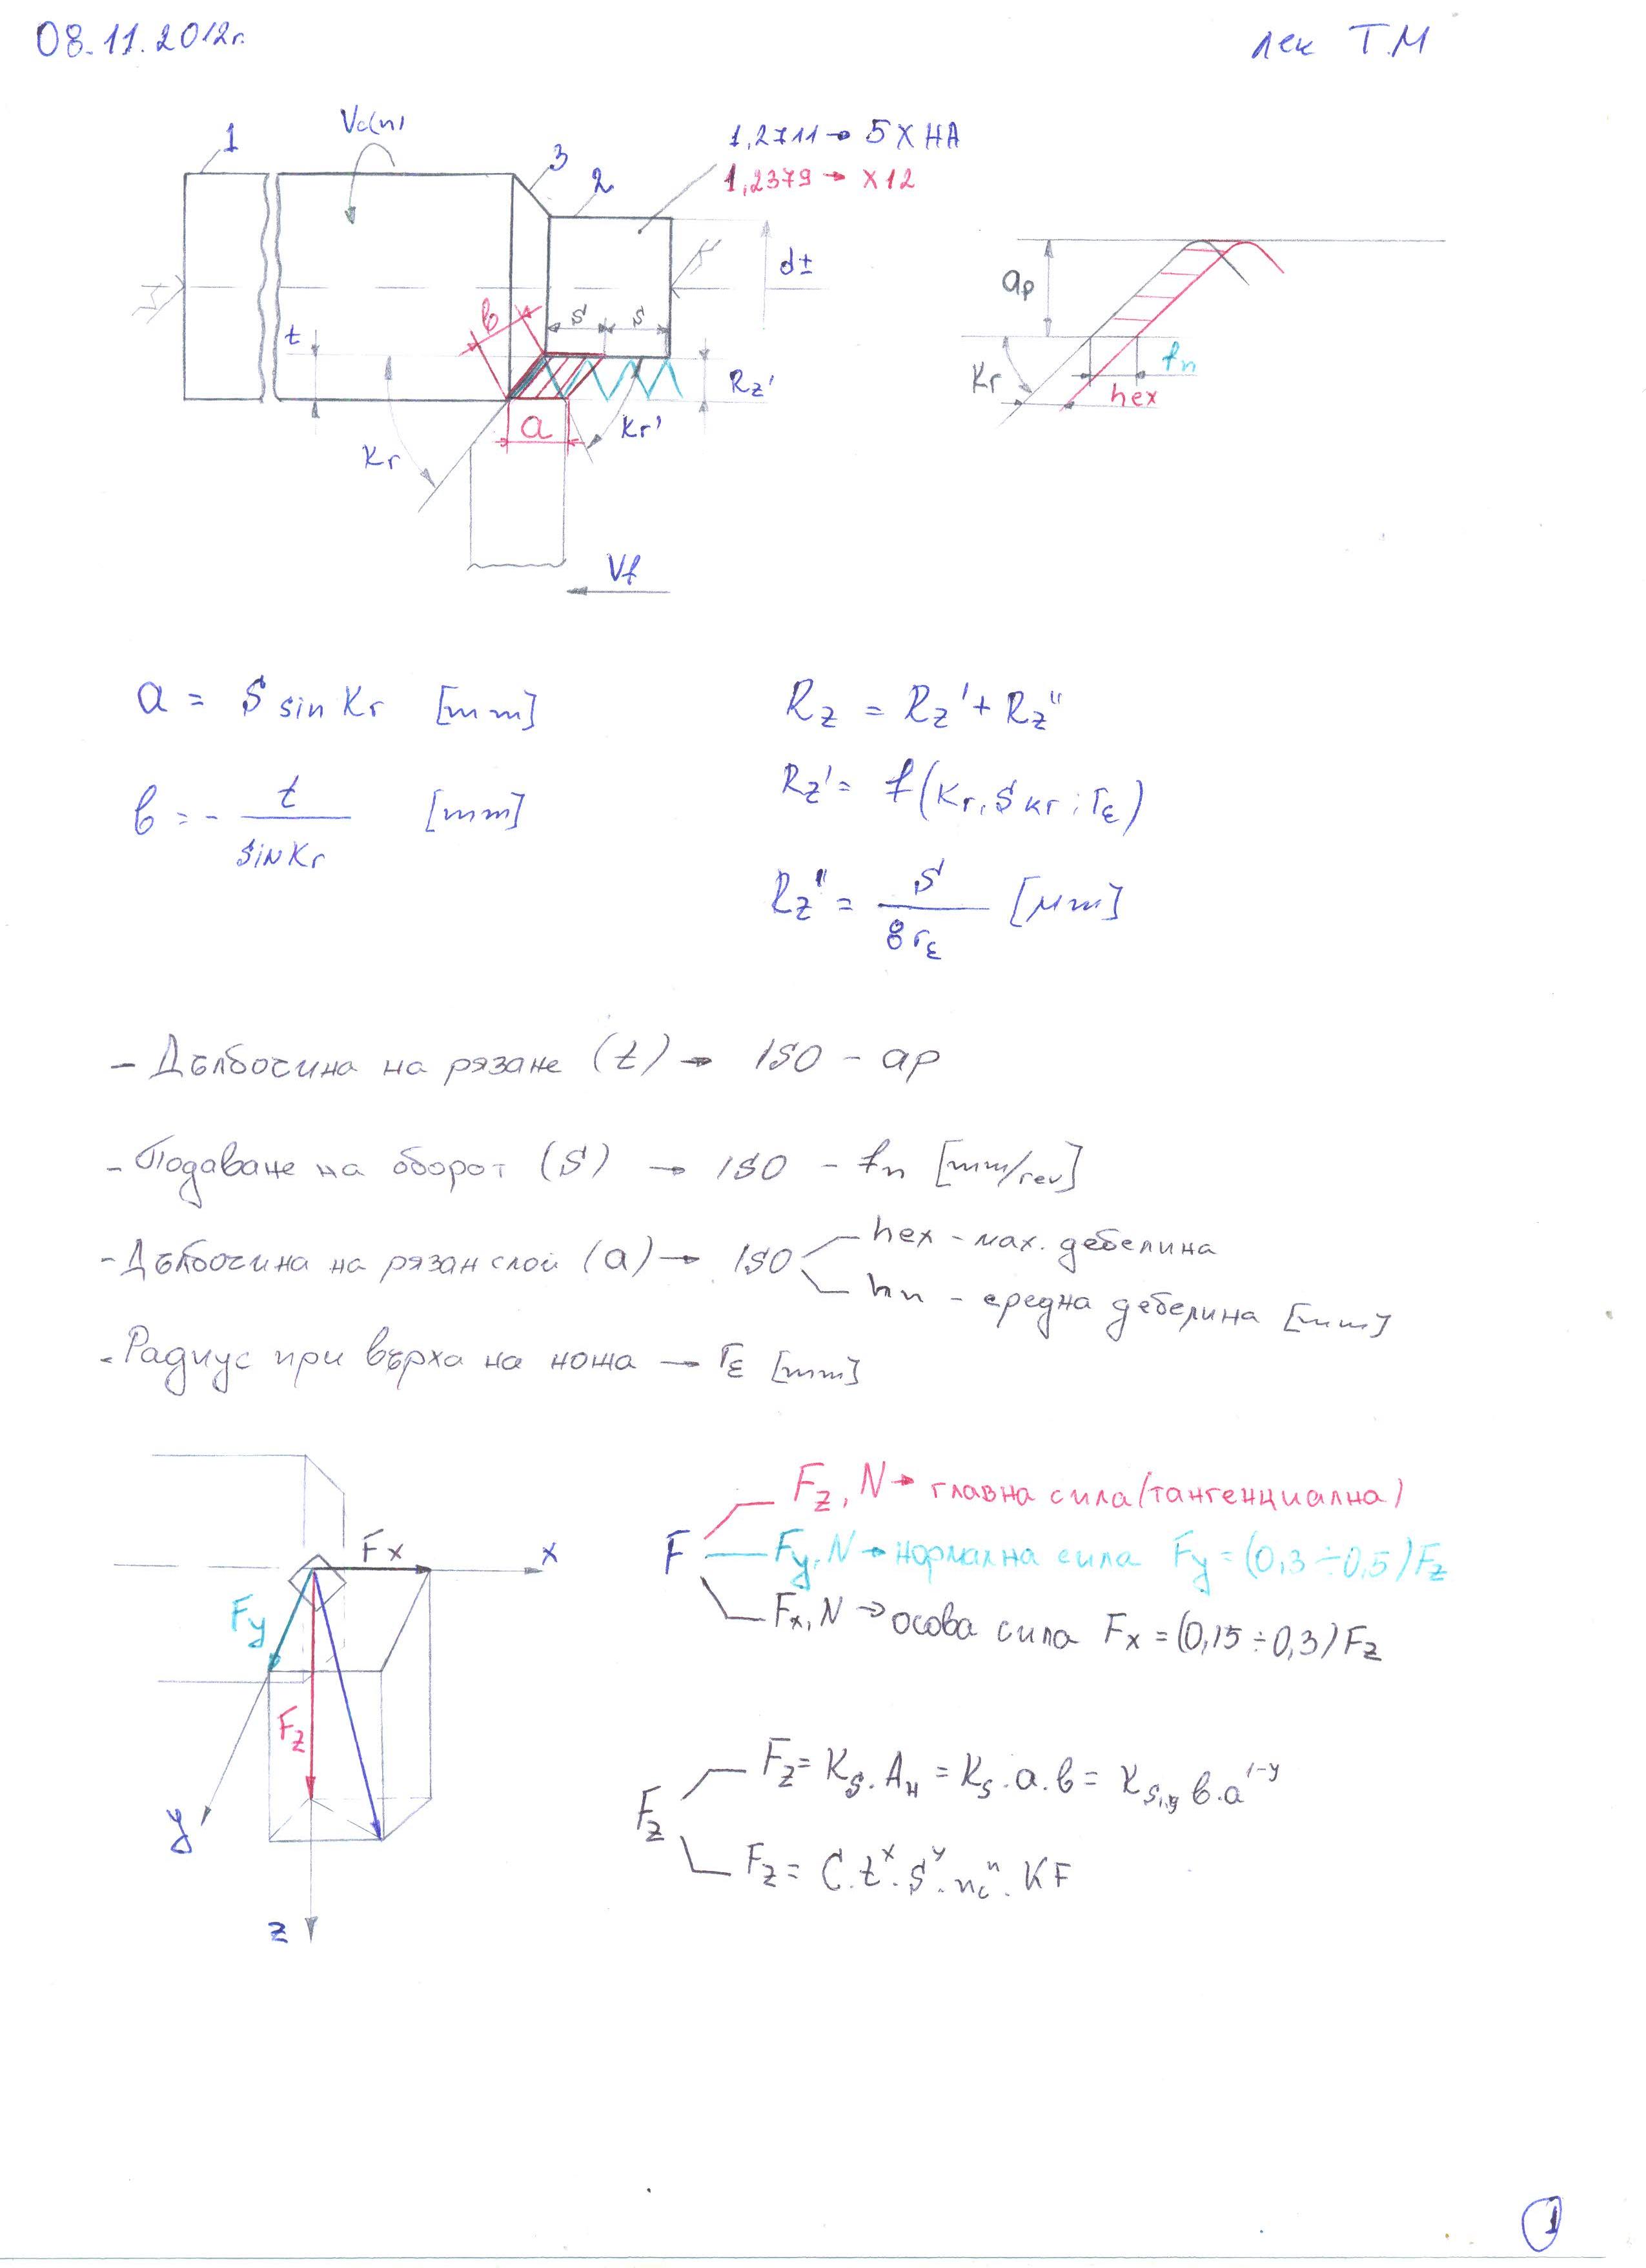 08.11.2012г.
лек Т.М
1
Vc(n)
3
2
1,2711 → 5ХНА
1,2379 → Х12
d±
t
в
s
s
Rz'
a
Kr'
Kr
Vf
ap
Kr
fn
hex
a = S sin Kr [mm]
в = - t / sinKr [mm]
Rz = Rz' + Rz"
Rz' = f(Kr, S кr ; rε)
Rz" = S / 8 rε [μm]
- Дълбочина на рязане (t) → ISO - ap
- Подаване на оборот (S) → ISO - fn [mm/rev]
- Дълбочина на рязан слой (a) → ISO
hex - мах. дебелина
hn - средна дебелина [mm]
- Радиус при върха на ножа → rε [mm]
Fx
x
Fy
Fz
y
z
F
Fz, N → главна сила (тангенциална)
Fy, N → нормална сила Fy = (0,3 ÷ 0,5) Fz
Fx, N → осова сила Fx = (0,15 ÷ 0,3) Fz
Fz
Fz = Ks . Aн = Ks . a . в = Ks1,y в . a^1-y
Fz = C . t^x . S^y . nc^n . KF
1